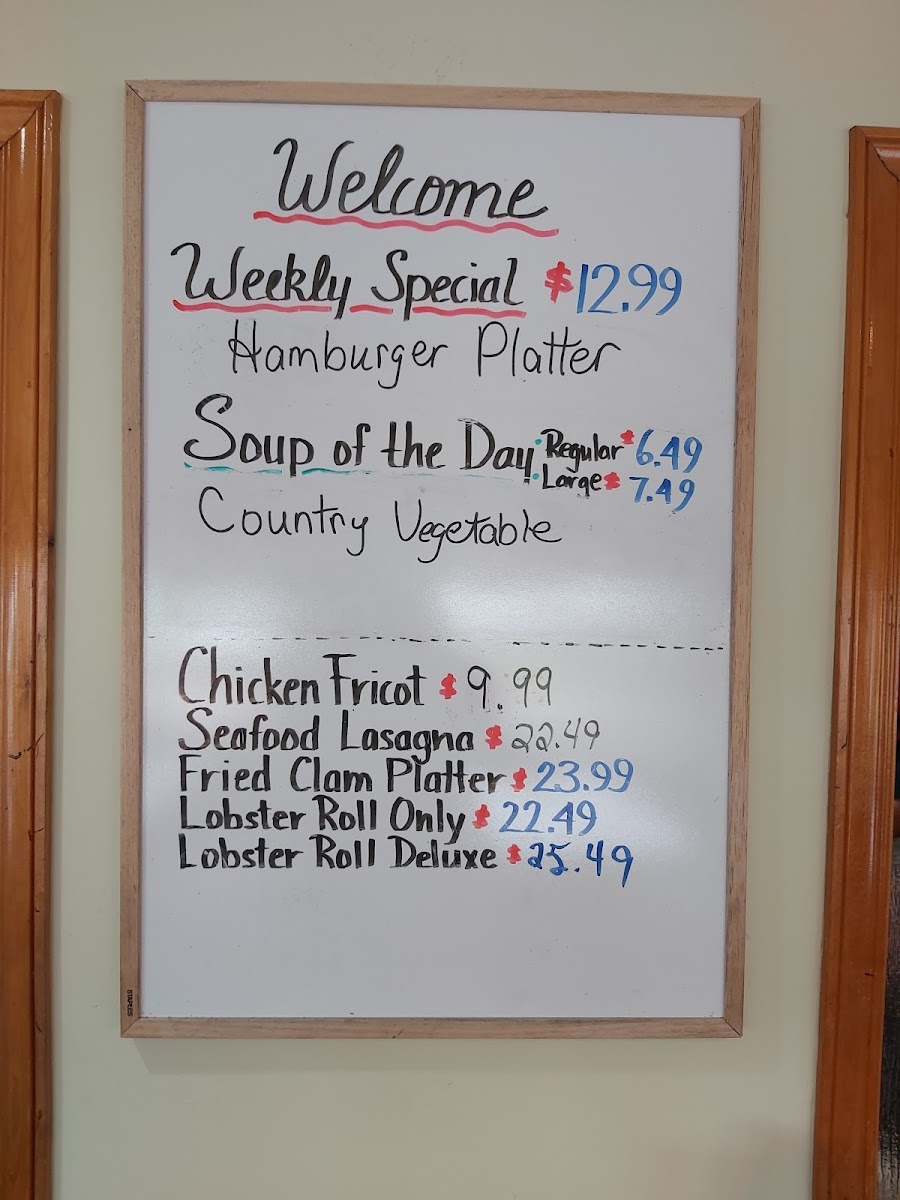 Welcome
Weekly Special $12.99
Hamburger Platter
Soup of the Day: Regular $ 6.49
Large $ 7.49
Country Vegetable
Chicken Fricot $ 9.99
Seafood Lasagna $ 22.49
Fried Clam Platter $ 23.99
Lobster Roll Only $ 22.49
Lobster Roll Deluxe $ 25.49
STAPLES